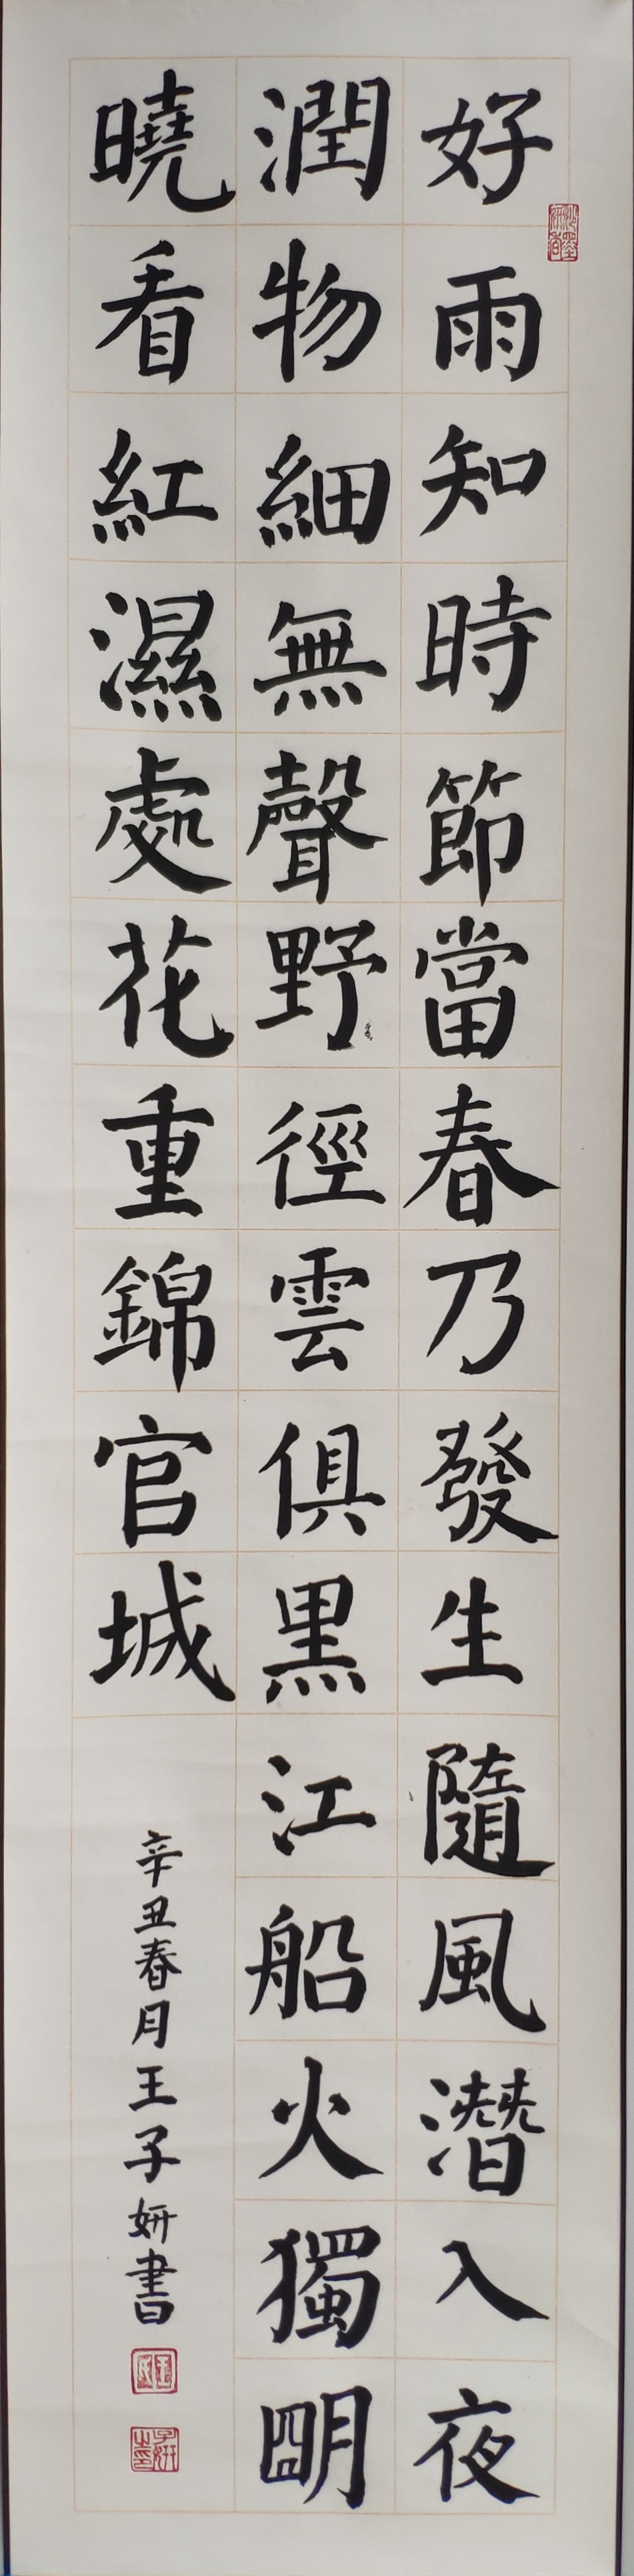 好雨知時節當春乃發生隨風潛入夜
潤物細無聲野徑雲俱黑江船火獨明
曉看紅濕處花重錦官城
辛丑春月王子妍書